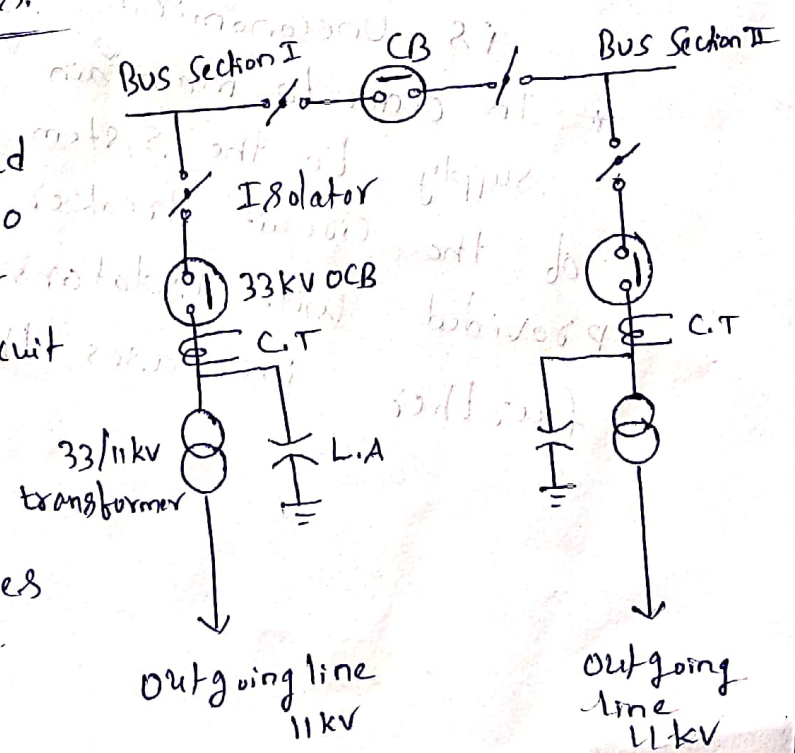 Bus Section I
CB
Bus Section II
Isolator
33kV OCB
C.T
C.T
33/11kV
transformer
L.A
Outgoing line
11kV
Outgoing
line
11kV
d
o
cuit
es